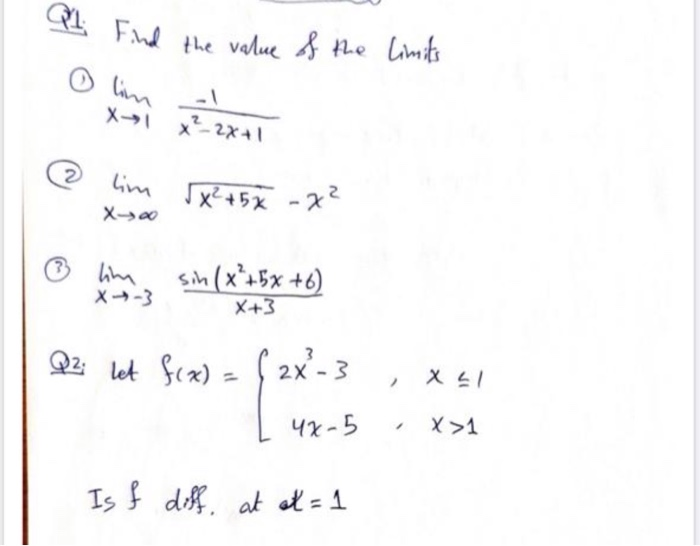 Q1: Find the value of the limits
① lim x→1 -1/(x²-2x+1)
② lim x→∞ √(x²+5x) - x²
③ lim x→-3 sin(x²+5x+6)/(x+3)
Q2: let f(x) = { 2x³-3 , x ≤ 1
4x-5 , x>1
Is f diff. at x = 1